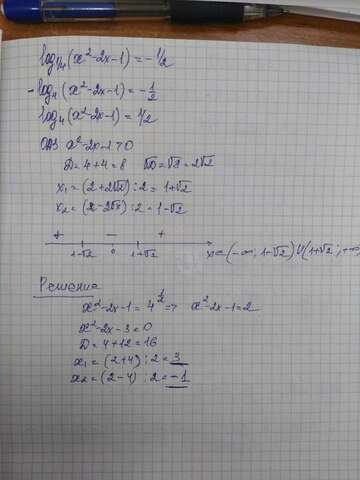 log₁/₄(x²-2x-1)=-1/2
-log₄(x²-2x-1)=-1/2
log₄(x²-2x-1)=1/2
ОДЗ x²-2x-1>0
D=4+4=8 √D=√8=2√2
x₁=(2+2√2):2=1+√2
x₂=(2-2√2):2=1-√2
+ - +
1-√2 0 1+√2 x∈(-∞; 1-√2)U(1+√2; +∞)
Решение
x²-2x-1=4^½ => x²-2x-1=2
x²-2x-3=0
D=4+12=16
x₁=(2+4):2=3
x₂=(2-4):2=-1